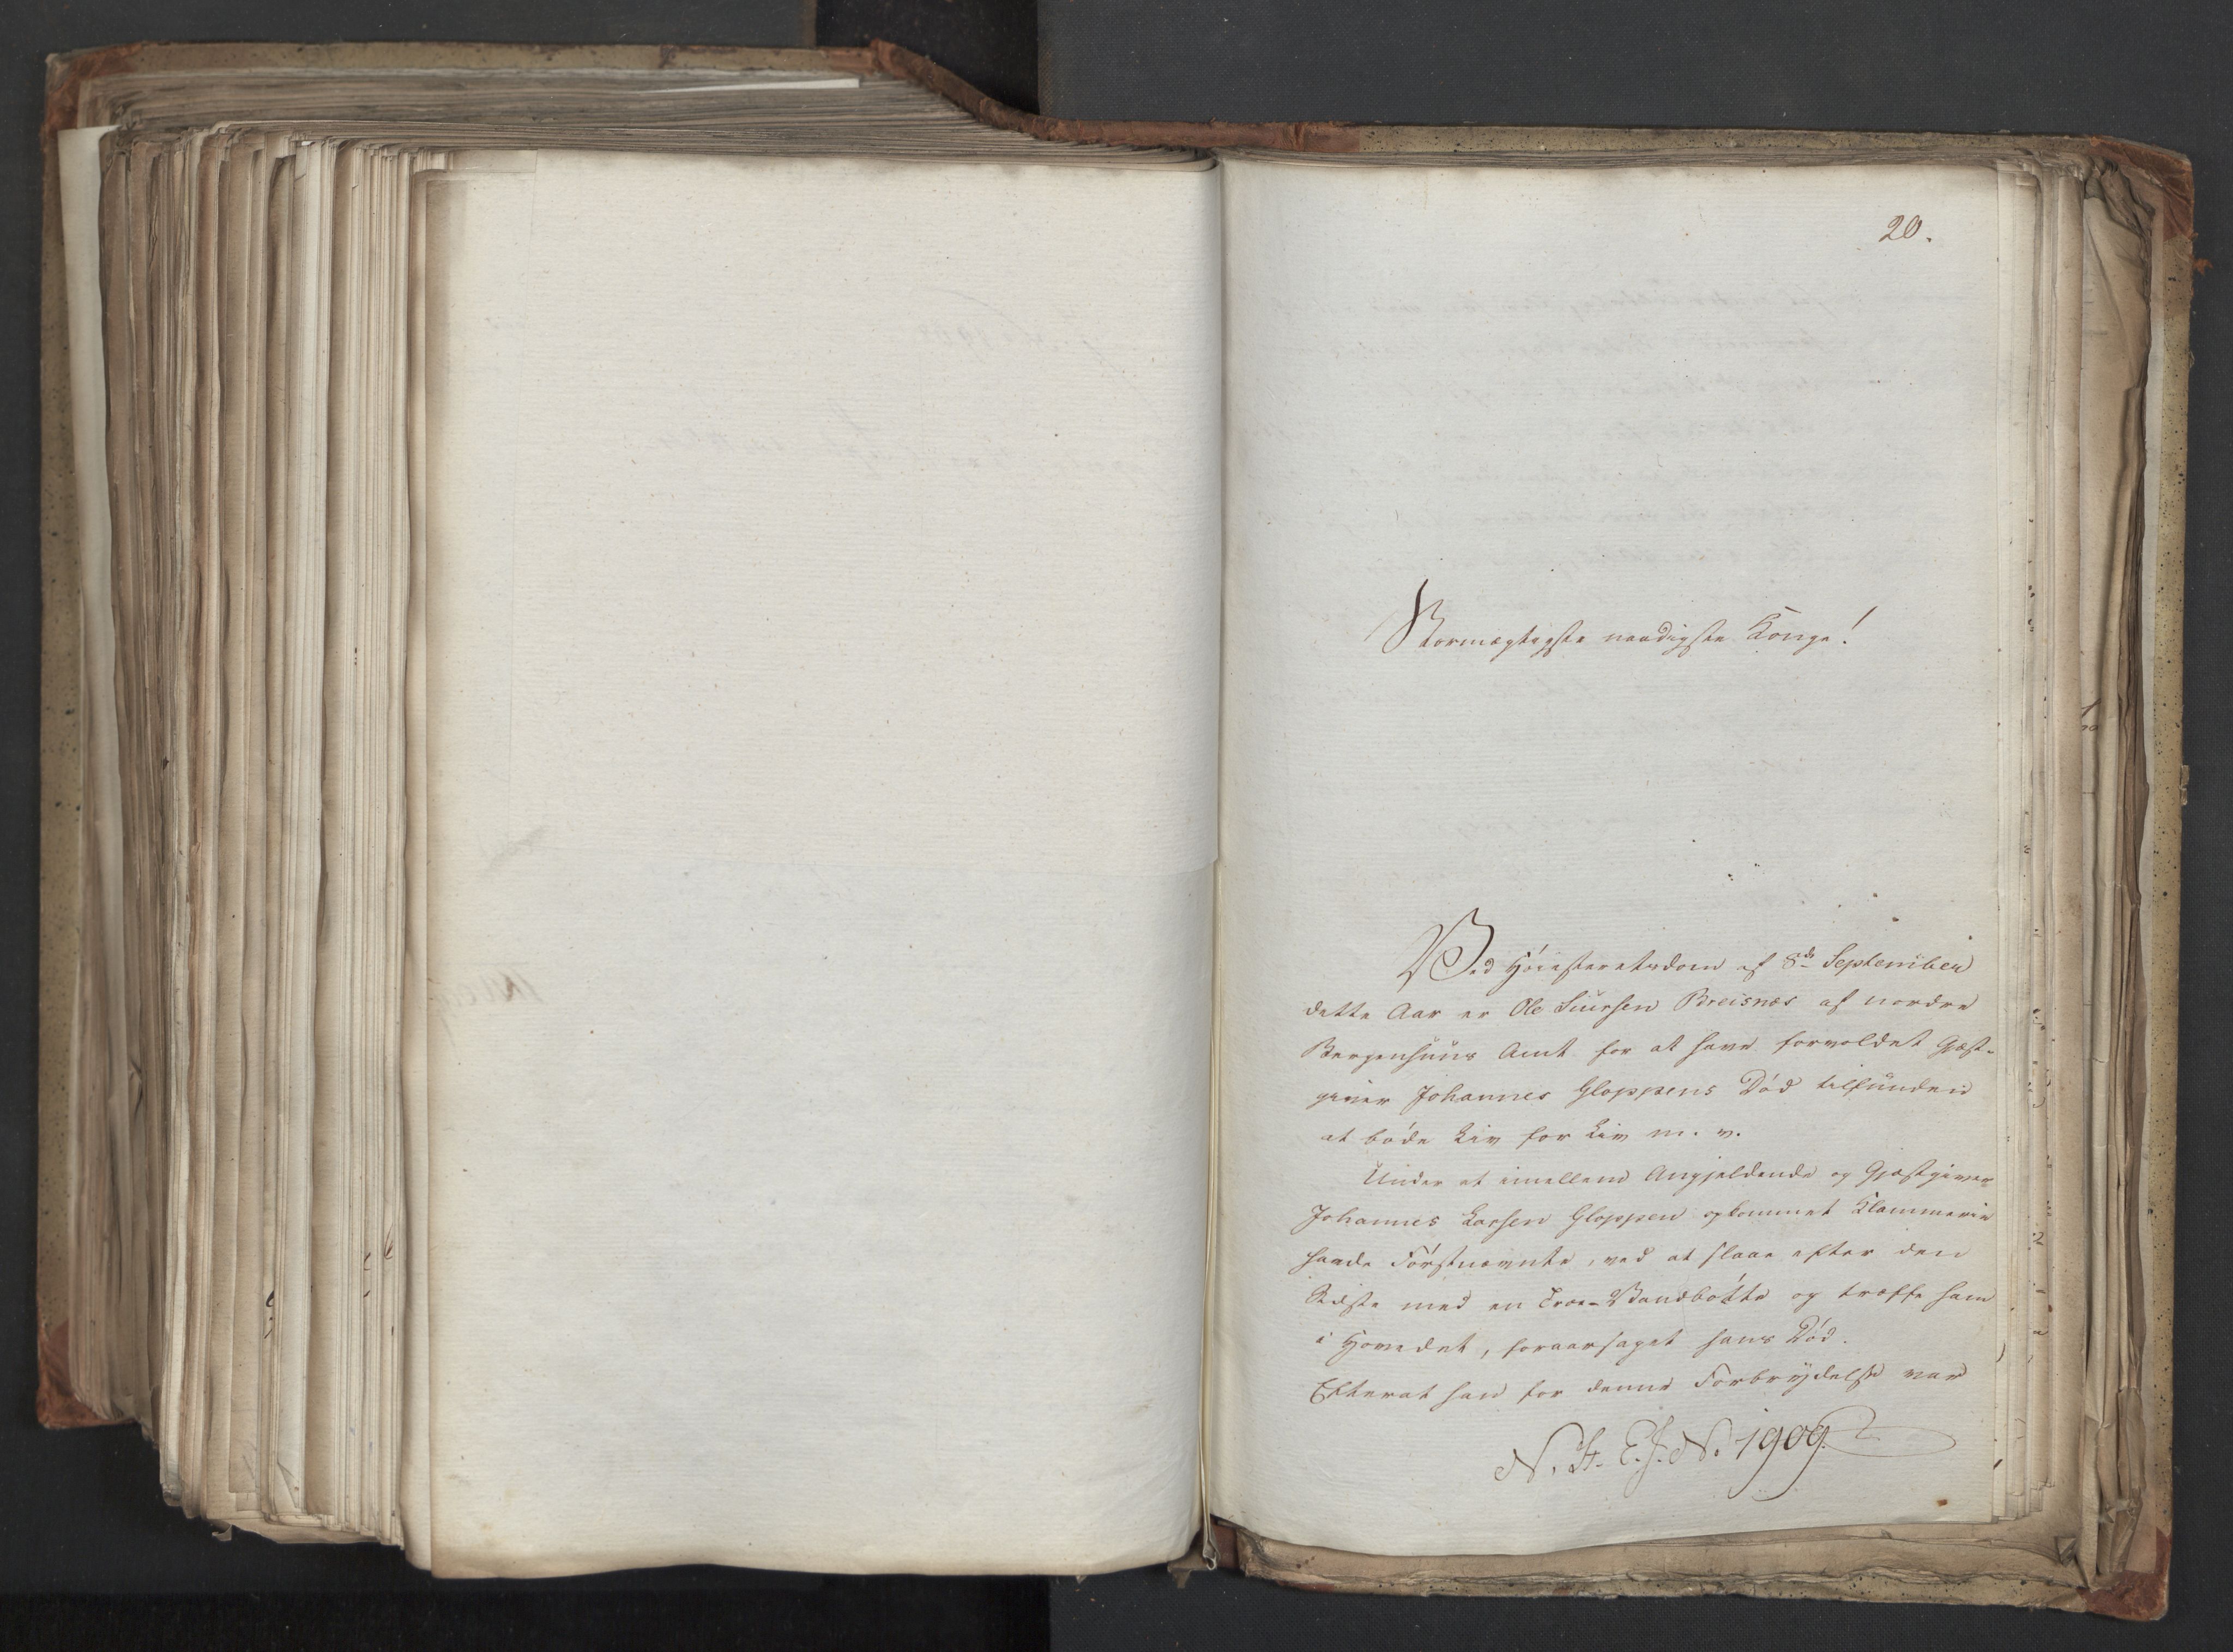 20.
Stormægtigste naadigste Konge!
Ved Høiesteretsdom af 8de September
dette Aar er Ole Siursen Breisnæs af nordre
Bergenhuus Amt for at have forvoldet Gæst-
giver Johannes Gloppens Död tilfunden
at böde Liv for Liv m. v.
Under et imellem Angjeldende og Gjæstgiver
Johannes Larsen Gloppen opkommet Klammerie
havde Förstnævnte, ved at slaae efter den
Sidste med en Træe-Vandbötte og træffe ham
i Hovedet, foraarsaget hans Död.
Efterat han for denne Forbrydelse var
N. H. E. J. No. 1909.